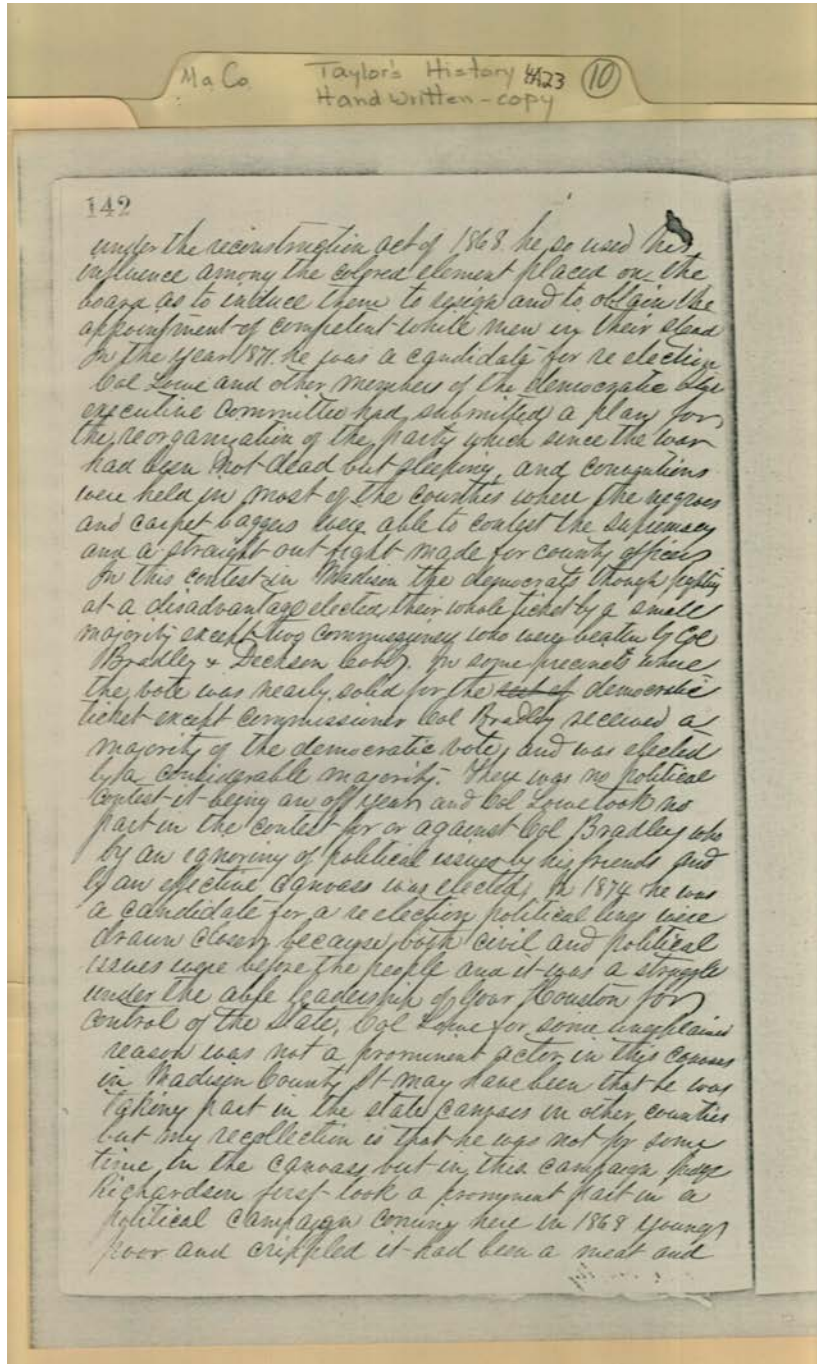 Ma Co Taylor's History 4A23 10
Handwritten - copy
142
under the reconstruction act of 1868 he so used his
influence among the colored element placed on the
board as to induce them to resign and to obtain the
appointment of competent white men in their stead
In the year 1871. he was a candidate for re election
Col Lowe and other members of the democratic
executive committee had submitted a plan for
the reorganization of the party which since the war
had been not dead but sleeping, and conventions
were held in most of the counties where the negroes
and carpet baggers were able to contest the supremacy
and a straight out fight made for county officers
In this contest in Madison the democrats though fighting
at a disadvantage elected their whole ticket by a small
majority except two commissioners who were beaten by Col
Bradley & Cobb. In some precincts where
the vote was nearly solid for the democratic
ticket except commissioner Col Bradley received a
majority of the democratic vote, and was elected
by a considerable majority. There was no political
contest it being an off year and Col Lowe took no
part in the contest for or against Col Bradley who
by an ignoring of political issues by his friends and
by an effective canvass was elected, In 1874 he was
a candidate for a re election, political lines were
drawn closer, because both civil and political
issues were before the people and it was a struggle
under the able leadership of Gour Houston for
control of the State. Col Lowe for some unexplained
reason was not a prominent actor in this canvass
in Madison County It may have been that he was
taking part in the state canvass in other counties
but my recollection is that he was not for some
time in the canvass but in this campaign Judge
Richardson first took a prominent part in a
political campaign coming here in 1868 young
poor and crippled it had been a meat and